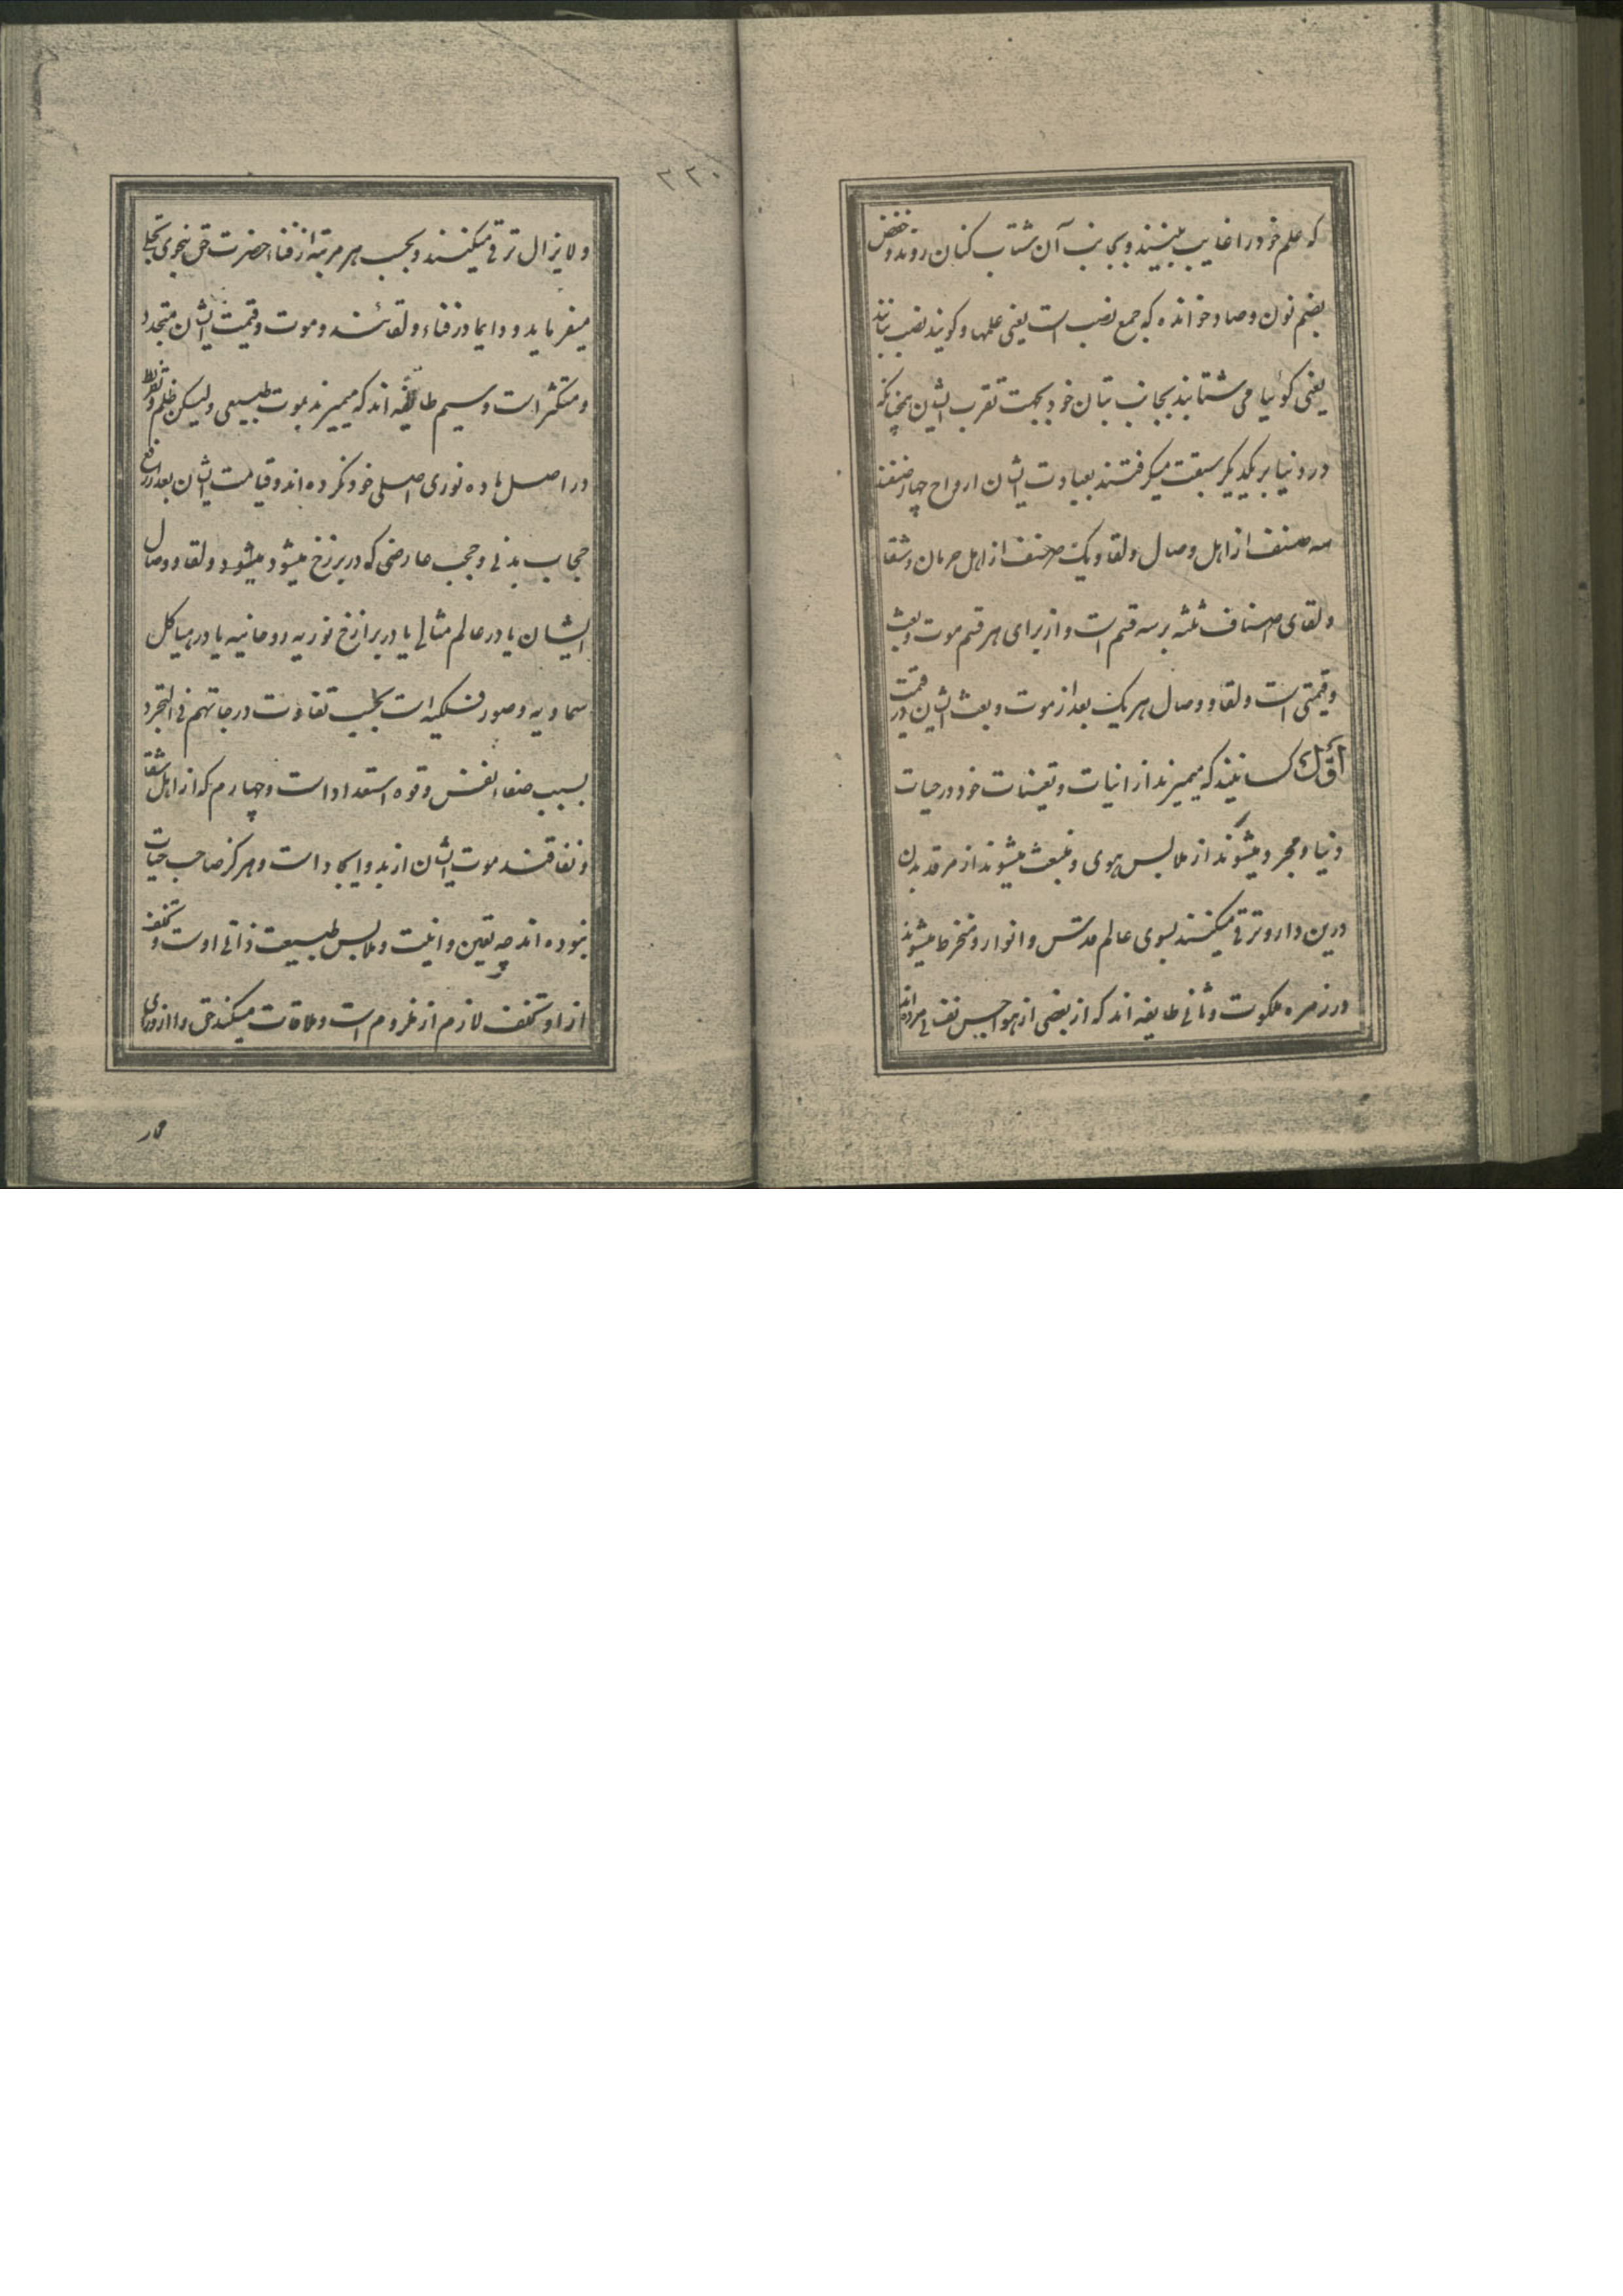 که علم خود را غایب ببینند و بجانب آن شتاب کنان روند و حفص
بضم نون و صاد خوانده که جمع نصب است یعنی علمها و کویند نصب بتانند
یعنی کوئیا می شتابند بجانب بتان خود بجهت تقرب ایشان همچنانکه
در دنیا بر یکدیکر سبقت میکرفتند بعبادت ایشان ارواح چهار صنفند
سه صنف از اهل وصال و لقا و یک صنف از اهل حرمان و شقا
و لقای اصناف ثلثه بر سه قسم است و از برای هر قسم موت و بعث
و قیمتی است و لقا و وصال هر یک بعد از موت و بعث ایشان در قیمت
اوّل کسانیند که میمیرند از انیات و تعینات خود در حیات
دنیا و مجرد میشوند از ملابس هوی و منبعث میشوند از مرقد بدن
درین دار و ترقی میکنند بسوی عالم قدس و انوار و منخرط میشوند
در زمره ملکوت و ثانی طایفه اند که از بعضی از هواجس نفسانی مرده‌اند
۲۲۰
و لا یزال ترقی میکنند و بحسب هر مرتبه از فناء حضرت حق بنحوی تجلی
میفرماید و دایما در فناء و لقائند و موت و قیمت ایشان متجدد
و متکثر است و سیم طایفه اند که میمیرند بموت طبیعی و لیکن ظلم و تفریط
در اصل ماده نوری اصلی خود نکرده اند و قیامت ایشان بعد از رفع
حجاب بدنی و حجب عارضی که در برزخ میشود میشود و لقا و وصال
ایشان یا در عالم مثالی یا در برازخ نوریه روحانیه یا در هیاکل
سماویه و صور فلکیه است بحسب تفاوت درجاتهم فی التجرد
بسبب صفاء نفس و قوه استعداد است و چهارم که از اهل شقا
و نفاقند موت ایشان از بدو ایجاد است و هرکز صاحب حیات
نبوده اند چه تعین و انیت و ملابس طبیعت ذاتی اوست و تخلف
از او تخلف لازم از ملزوم است و ملاقات میکنند حق را از ورای